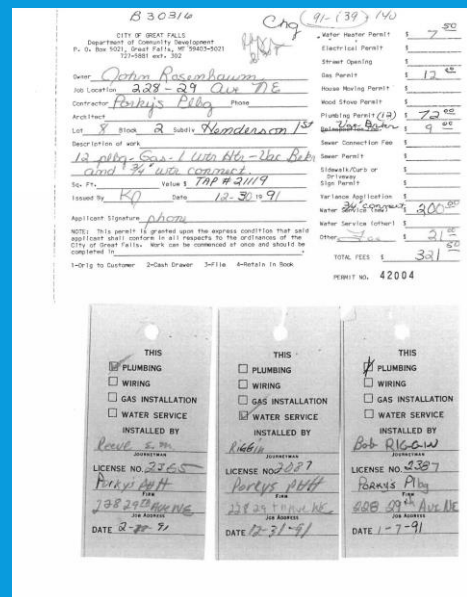 B 30316
Chg (91-(39) 140
CITY OF GREAT FALLS
Department of Community Development
P. O. Box 5021, Great Falls, MT 59403-5021
727-5881 ext. 382
Owner John Rosenbaum
Job Location 228-29 Ave NE
Contractor Porky's Plbg Phone
Architect
Lot 8 Block 2 Subdiv Henderson 1st
Description of work
12 plbg-Gas-1 Wtr Htr-Vac Bekr
and 3/4" wtr connect
Sq. Ft. Value $ TAP # 21119
Issued By KP Date 12-30 19 91
Applicant Signature phone
NOTE: This permit is granted upon the express condition that said
applicant shall conform in all respects to the ordinances of the
City of Great Falls. Work can be commenced at once and should be
completed in
1-Orig to Customer 2-Cash Drawer 3-File 4-Retain in Book
Water Heater Permit $ 7 50
Electrical Permit $
Street Opening $
Gas Permit $ 12 00
House Moving Permit $
Wood Stove Permit $
Plumbing Permit (12) $ 72 00
Vac Brkr $ 9 00
Sewer Connection Fee $
Sewer Permit $
Sidewalk/Curb or
Driveway $
Sign Permit $
Variance Application $
3/4" connect
Water Service (new) $ 200 00
Water Service (other) $
Other $ 21 00
TOTAL FEES $ 321 50
PERMIT NO. 42004
THIS
PLUMBING
WIRING
GAS INSTALLATION
WATER SERVICE
INSTALLED BY
Reeve
JOURNEYMAN
LICENSE NO. 2365
Porky's P&H
FIRM
228 29th Ave NE
JOB ADDRESS
DATE 2- 91
THIS
PLUMBING
WIRING
GAS INSTALLATION
WATER SERVICE
INSTALLED BY
Riggin
JOURNEYMAN
LICENSE NO. 2087
Porkys P&H
FIRM
228 29th Ave NE
JOB ADDRESS
DATE 12-31-91
THIS
PLUMBING
WIRING
GAS INSTALLATION
WATER SERVICE
INSTALLED BY
Bob RIGGIN
JOURNEYMAN
LICENSE NO. 2387
Porkys Plbg
FIRM
228 29th Ave NE
JOB ADDRESS
DATE 1-7-91